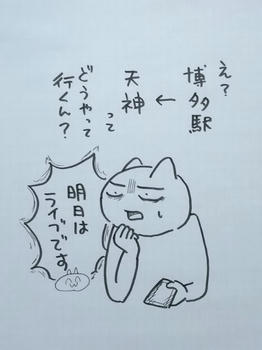 え?
博多駅
↓
天神
って
どうやって
行くん?
明日は
ライブです